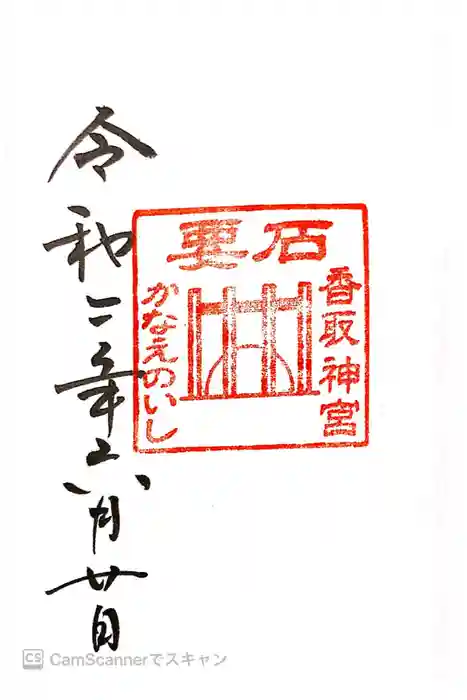 香取神宮
要石
かなえのいし
令和二年六月廿日
CS CamScannerでスキャン